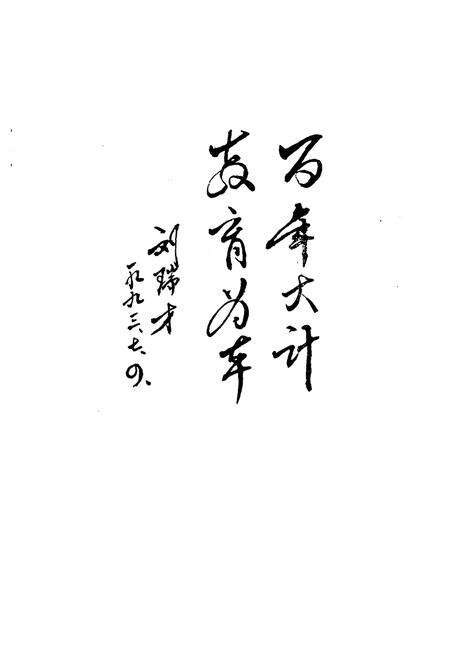 百年大计
教育为本
刘瑞才
一九九三.七.四.